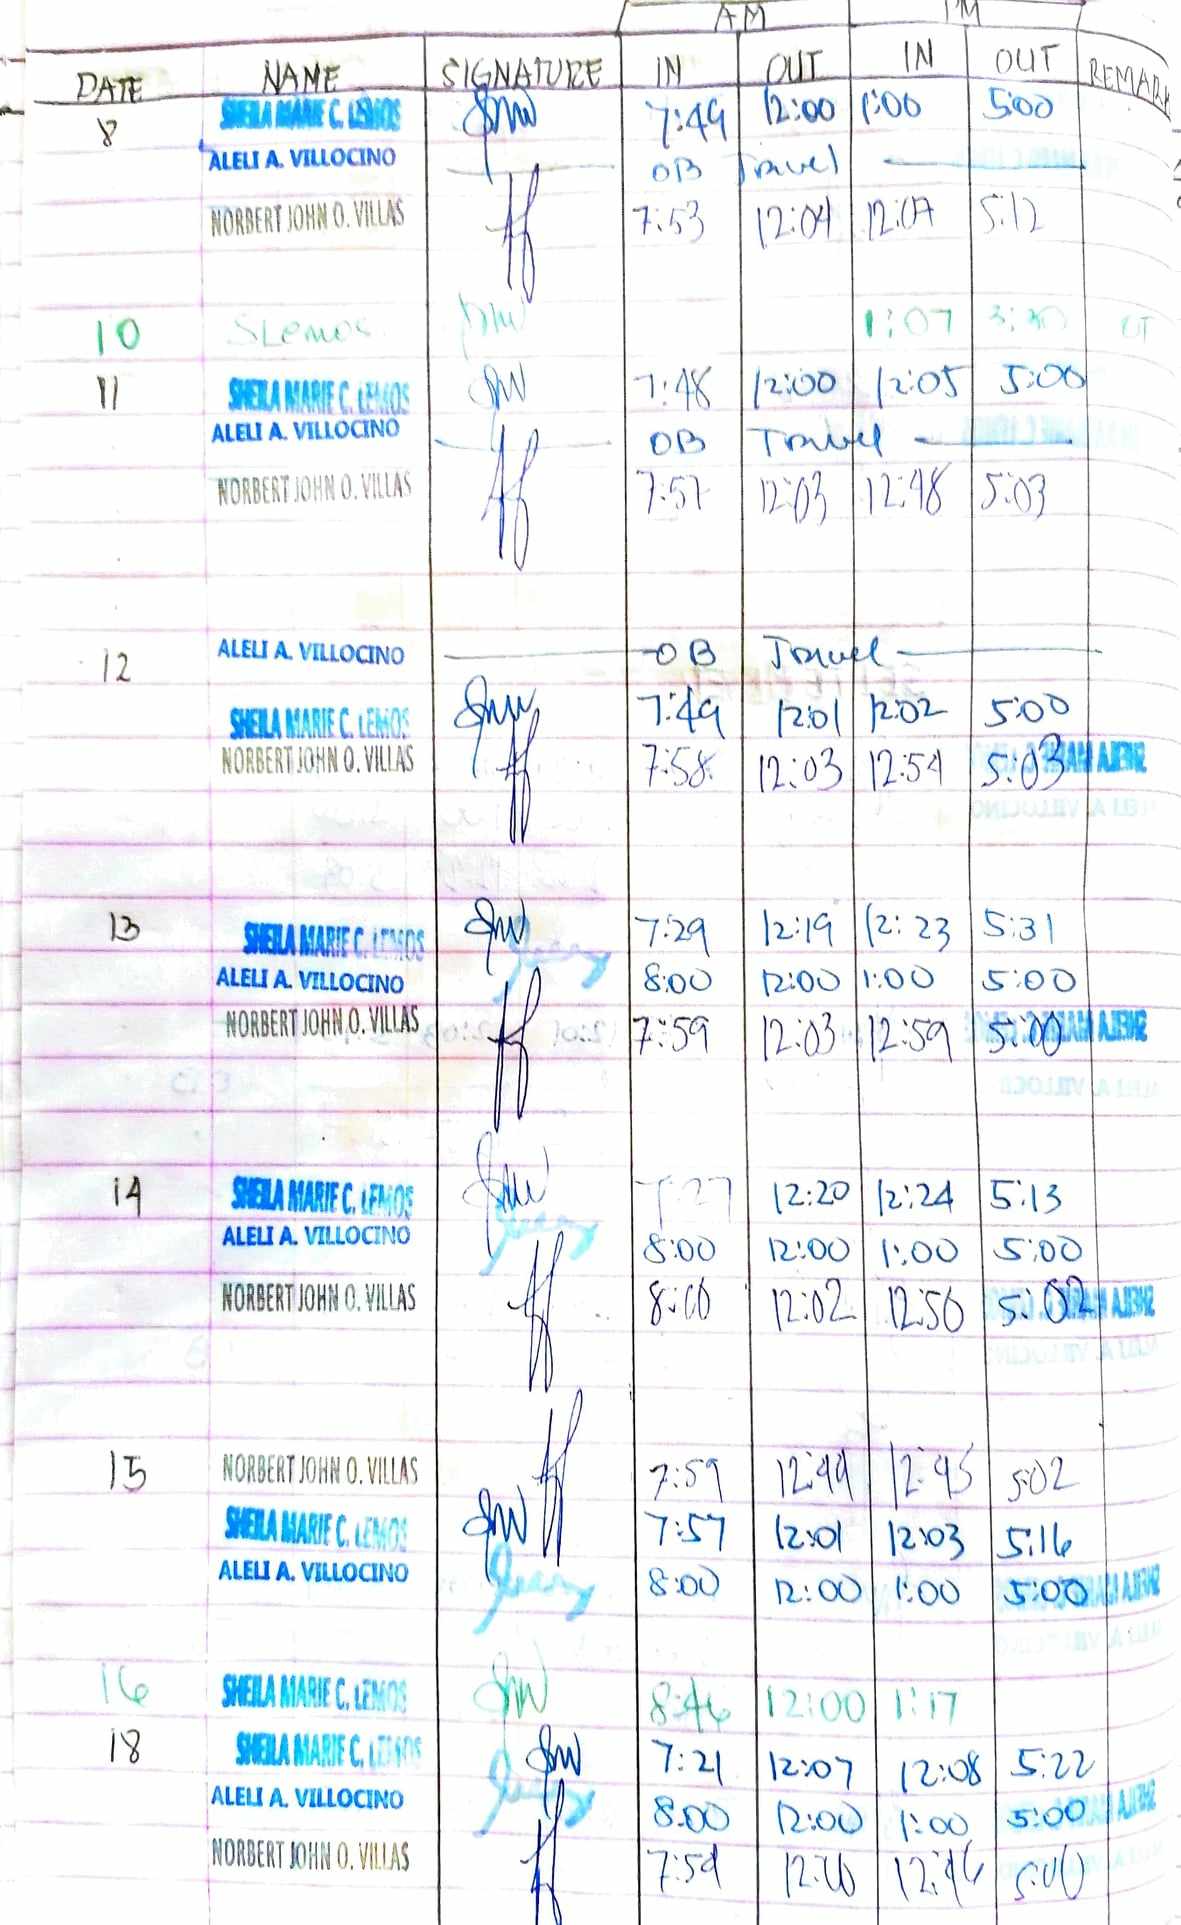 AM PM
DATE NAME SIGNATURE IN OUT IN OUT REMARK
8 SHEILA MARIE C. LEMOS 7:49 12:00 1:00 5:00
ALELI A. VILLOCINO OB Travel
NORBERT JOHN O. VILLAS 7:53 12:04 12:07 5:12
10 SLemos 1:07 3:30 UT
11 SHEILA MARIE C. LEMOS 7:48 12:00 12:05 5:00
ALELI A. VILLOCINO OB Travel
NORBERT JOHN O. VILLAS 7:57 12:03 12:48 5:03
12 ALELI A. VILLOCINO OB Travel
SHEILA MARIE C. LEMOS 7:49 12:01 12:02 5:00
NORBERT JOHN O. VILLAS 7:58 12:03 12:54 5:03
13 SHEILA MARIE C. LEMOS 7:29 12:19 12:23 5:31
ALELI A. VILLOCINO 8:00 12:00 1:00 5:00
NORBERT JOHN O. VILLAS 7:59 12:03 12:59 5:00
14 SHEILA MARIE C. LEMOS 7:27 12:20 12:24 5:13
ALELI A. VILLOCINO 8:00 12:00 1:00 5:00
NORBERT JOHN O. VILLAS 8:00 12:02 12:56 5:02
15 NORBERT JOHN O. VILLAS 7:59 12:44 12:45 5:02
SHEILA MARIE C. LEMOS 7:57 12:01 12:03 5:16
ALELI A. VILLOCINO 8:00 12:00 1:00 5:00
16 SHEILA MARIE C. LEMOS 8:46 12:00 1:17
18 SHEILA MARIE C. LEMOS 7:21 12:07 12:08 5:22
ALELI A. VILLOCINO 8:00 12:00 1:00 5:00
NORBERT JOHN O. VILLAS 7:54 12:46 5:00